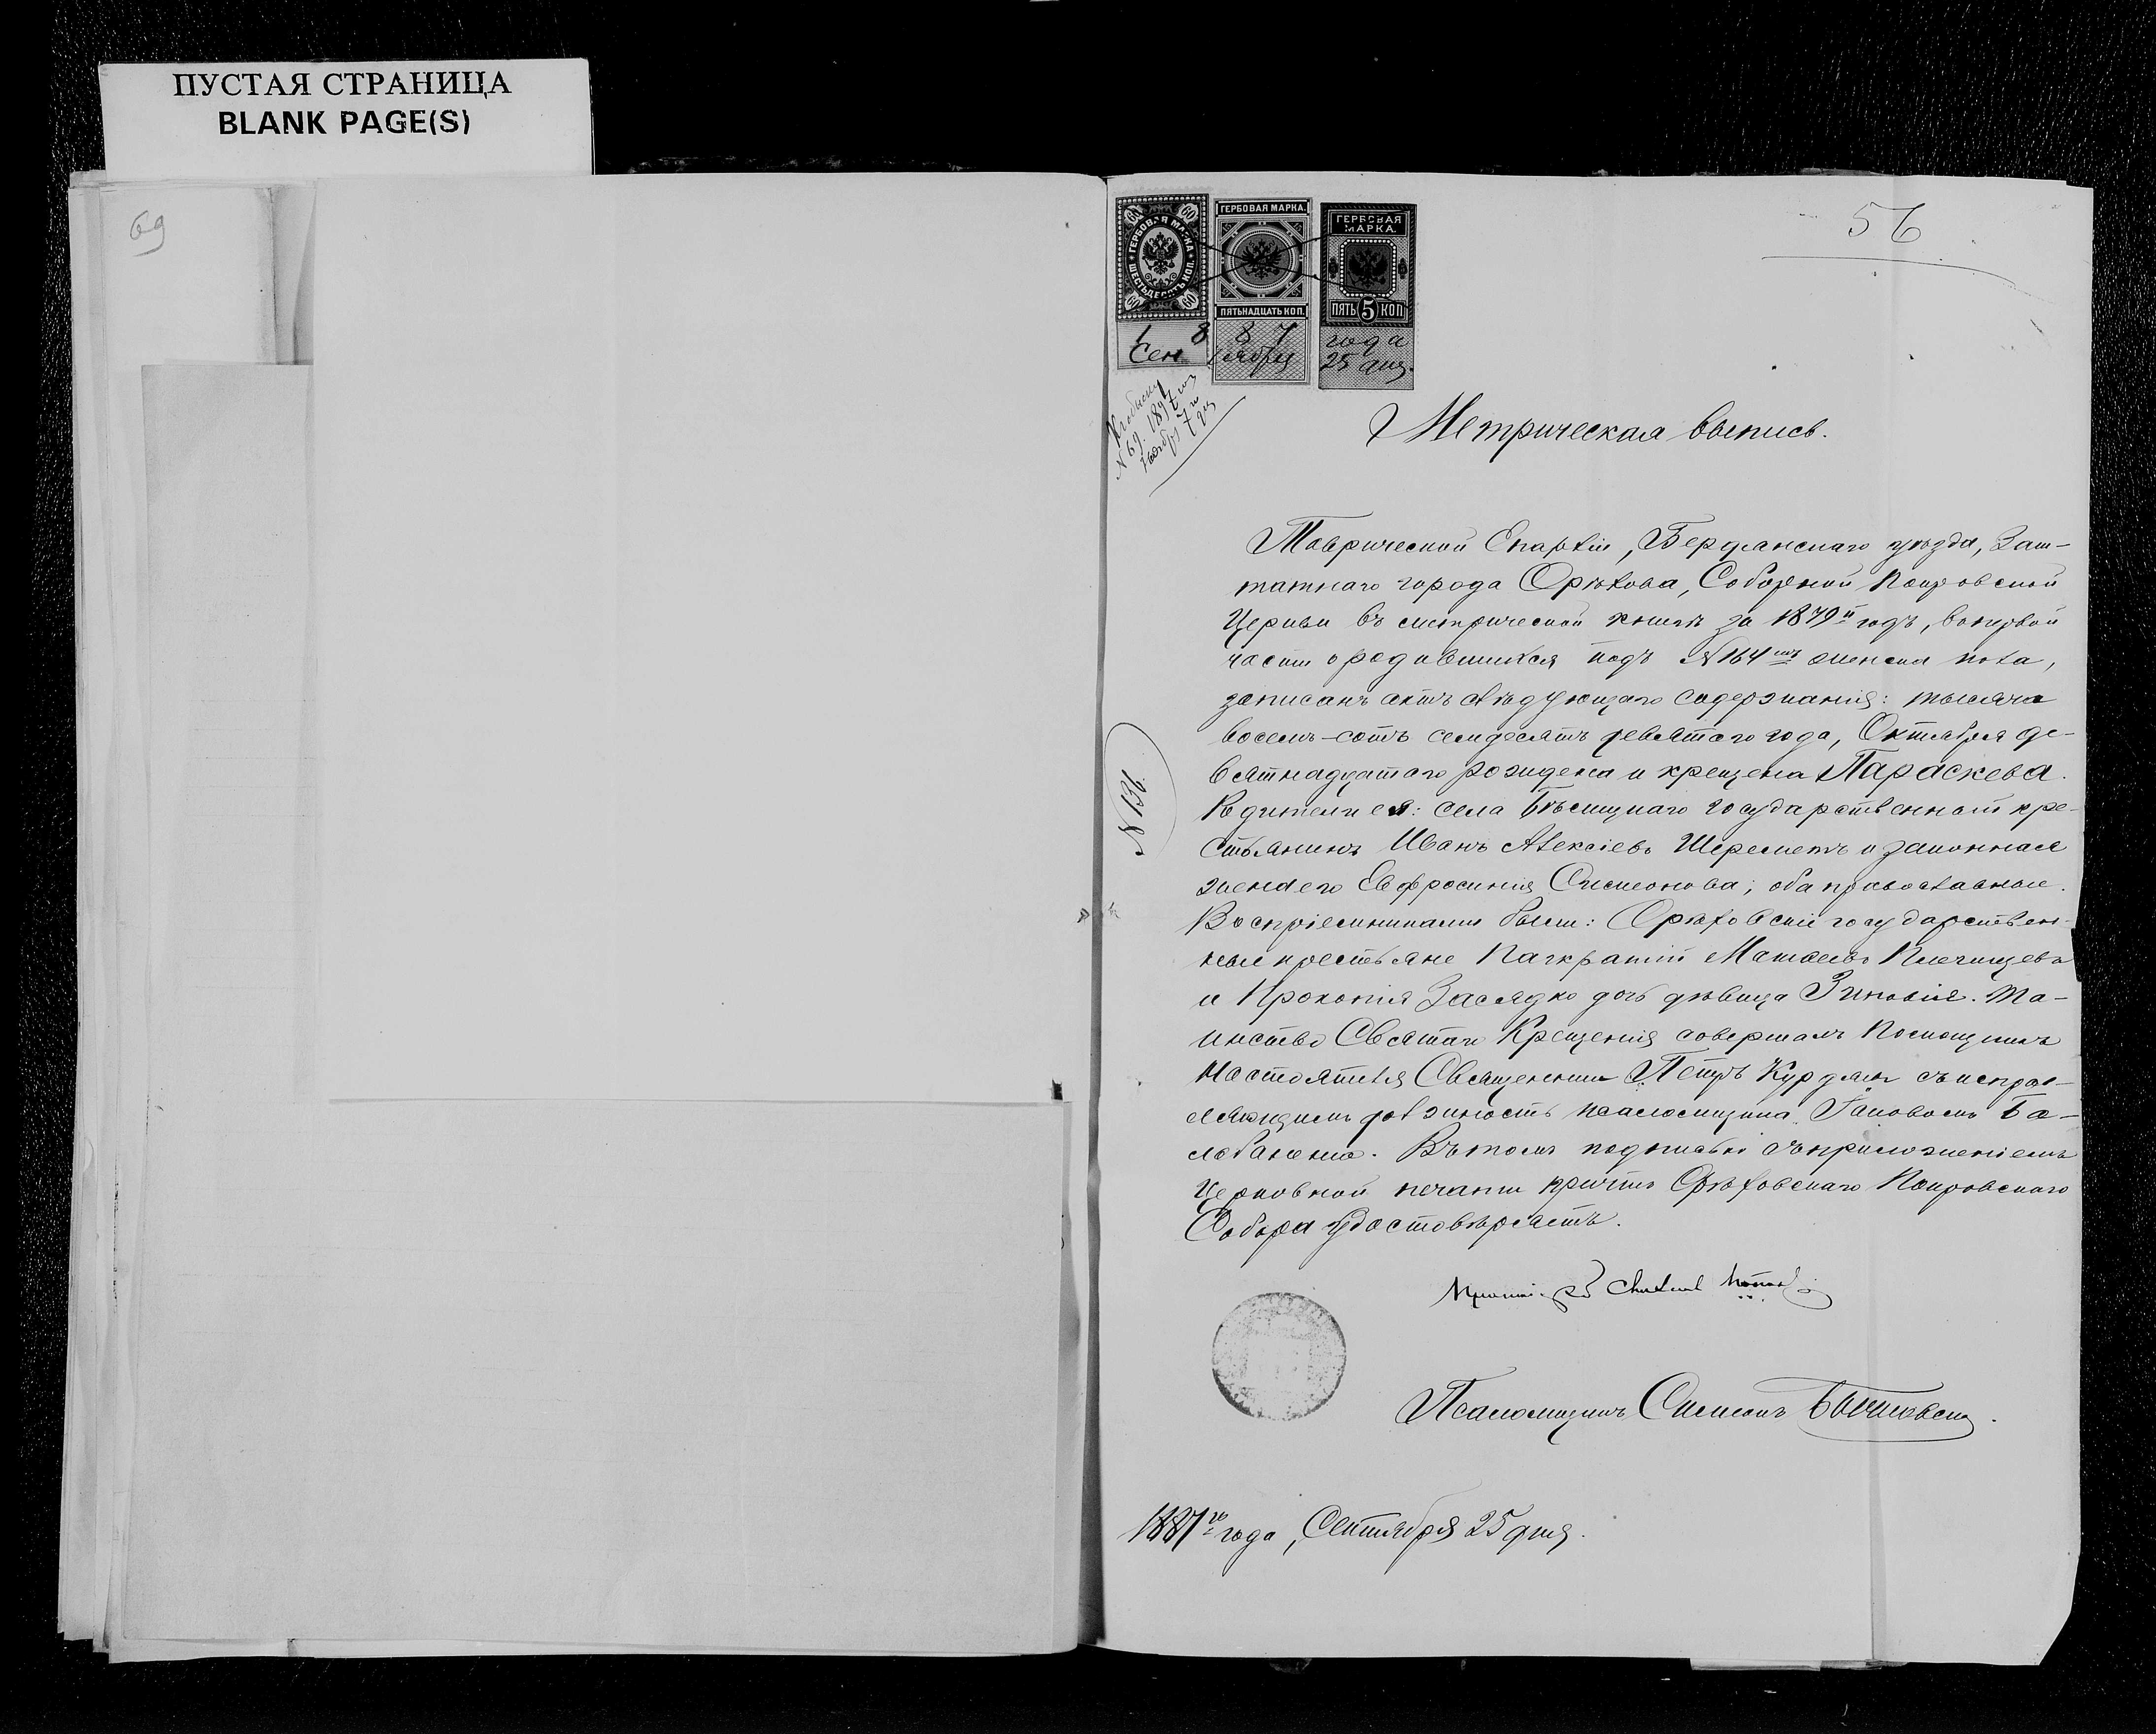 ПУСТАЯ СТРАНИЦА
BLANK PAGE(S)
69
56
60 60
ГЕРБОВАЯ МАРКА
ШЕСТЬДЕСЯТЪ КОП.
60 60
ГЕРБОВАЯ МАРКА.
ПЯТЬНАДЦАТЬ КОП.
ГЕРБОВАЯ
МАРКА.
ПЯТЬ 5 КОП
1 8 8 7 года
Сен тября 25 дня.
Метрическая выпись.
Таврической Епархіи, Бердянскаго уѣзда, Заш-
татнаго города Орѣхова, Соборной Покровской
Церкви въ метрической книгѣ за 1879й годъ, въ первой
части о родившихся подъ №164мъ женска пола,
записанъ актъ слѣдующаго содержанія: тысяча
восемь-сотъ семдесятъ девятаго года, Октября де-
вятнадцатаго рождена и крещена Параскева.
Родители ея: села государственный кре-
стьянинъ Иванъ Алексіевъ Шереметъ и законная
жена его Евфросинія Симеонова; оба православные.
Воспріемниками были: Орѣховскіе государствен-
ные крестьяне Панкратій
и Прокопія Засядко дочь дѣвица Зиновія. Та-
инство Святаго Крещенія совершалъ Помощникъ
Настоятеля Священникъ Петръ съ исправ-
ляющимъ должность псаломщика
Въ томъ подписью съ приложеніемъ
Церковной печати причтъ Орѣховскаго Покровскаго
Собора удостовѣряетъ.
№ 136
Псаломщикъ Симеонъ
1887го года, Сентября 25 дня.